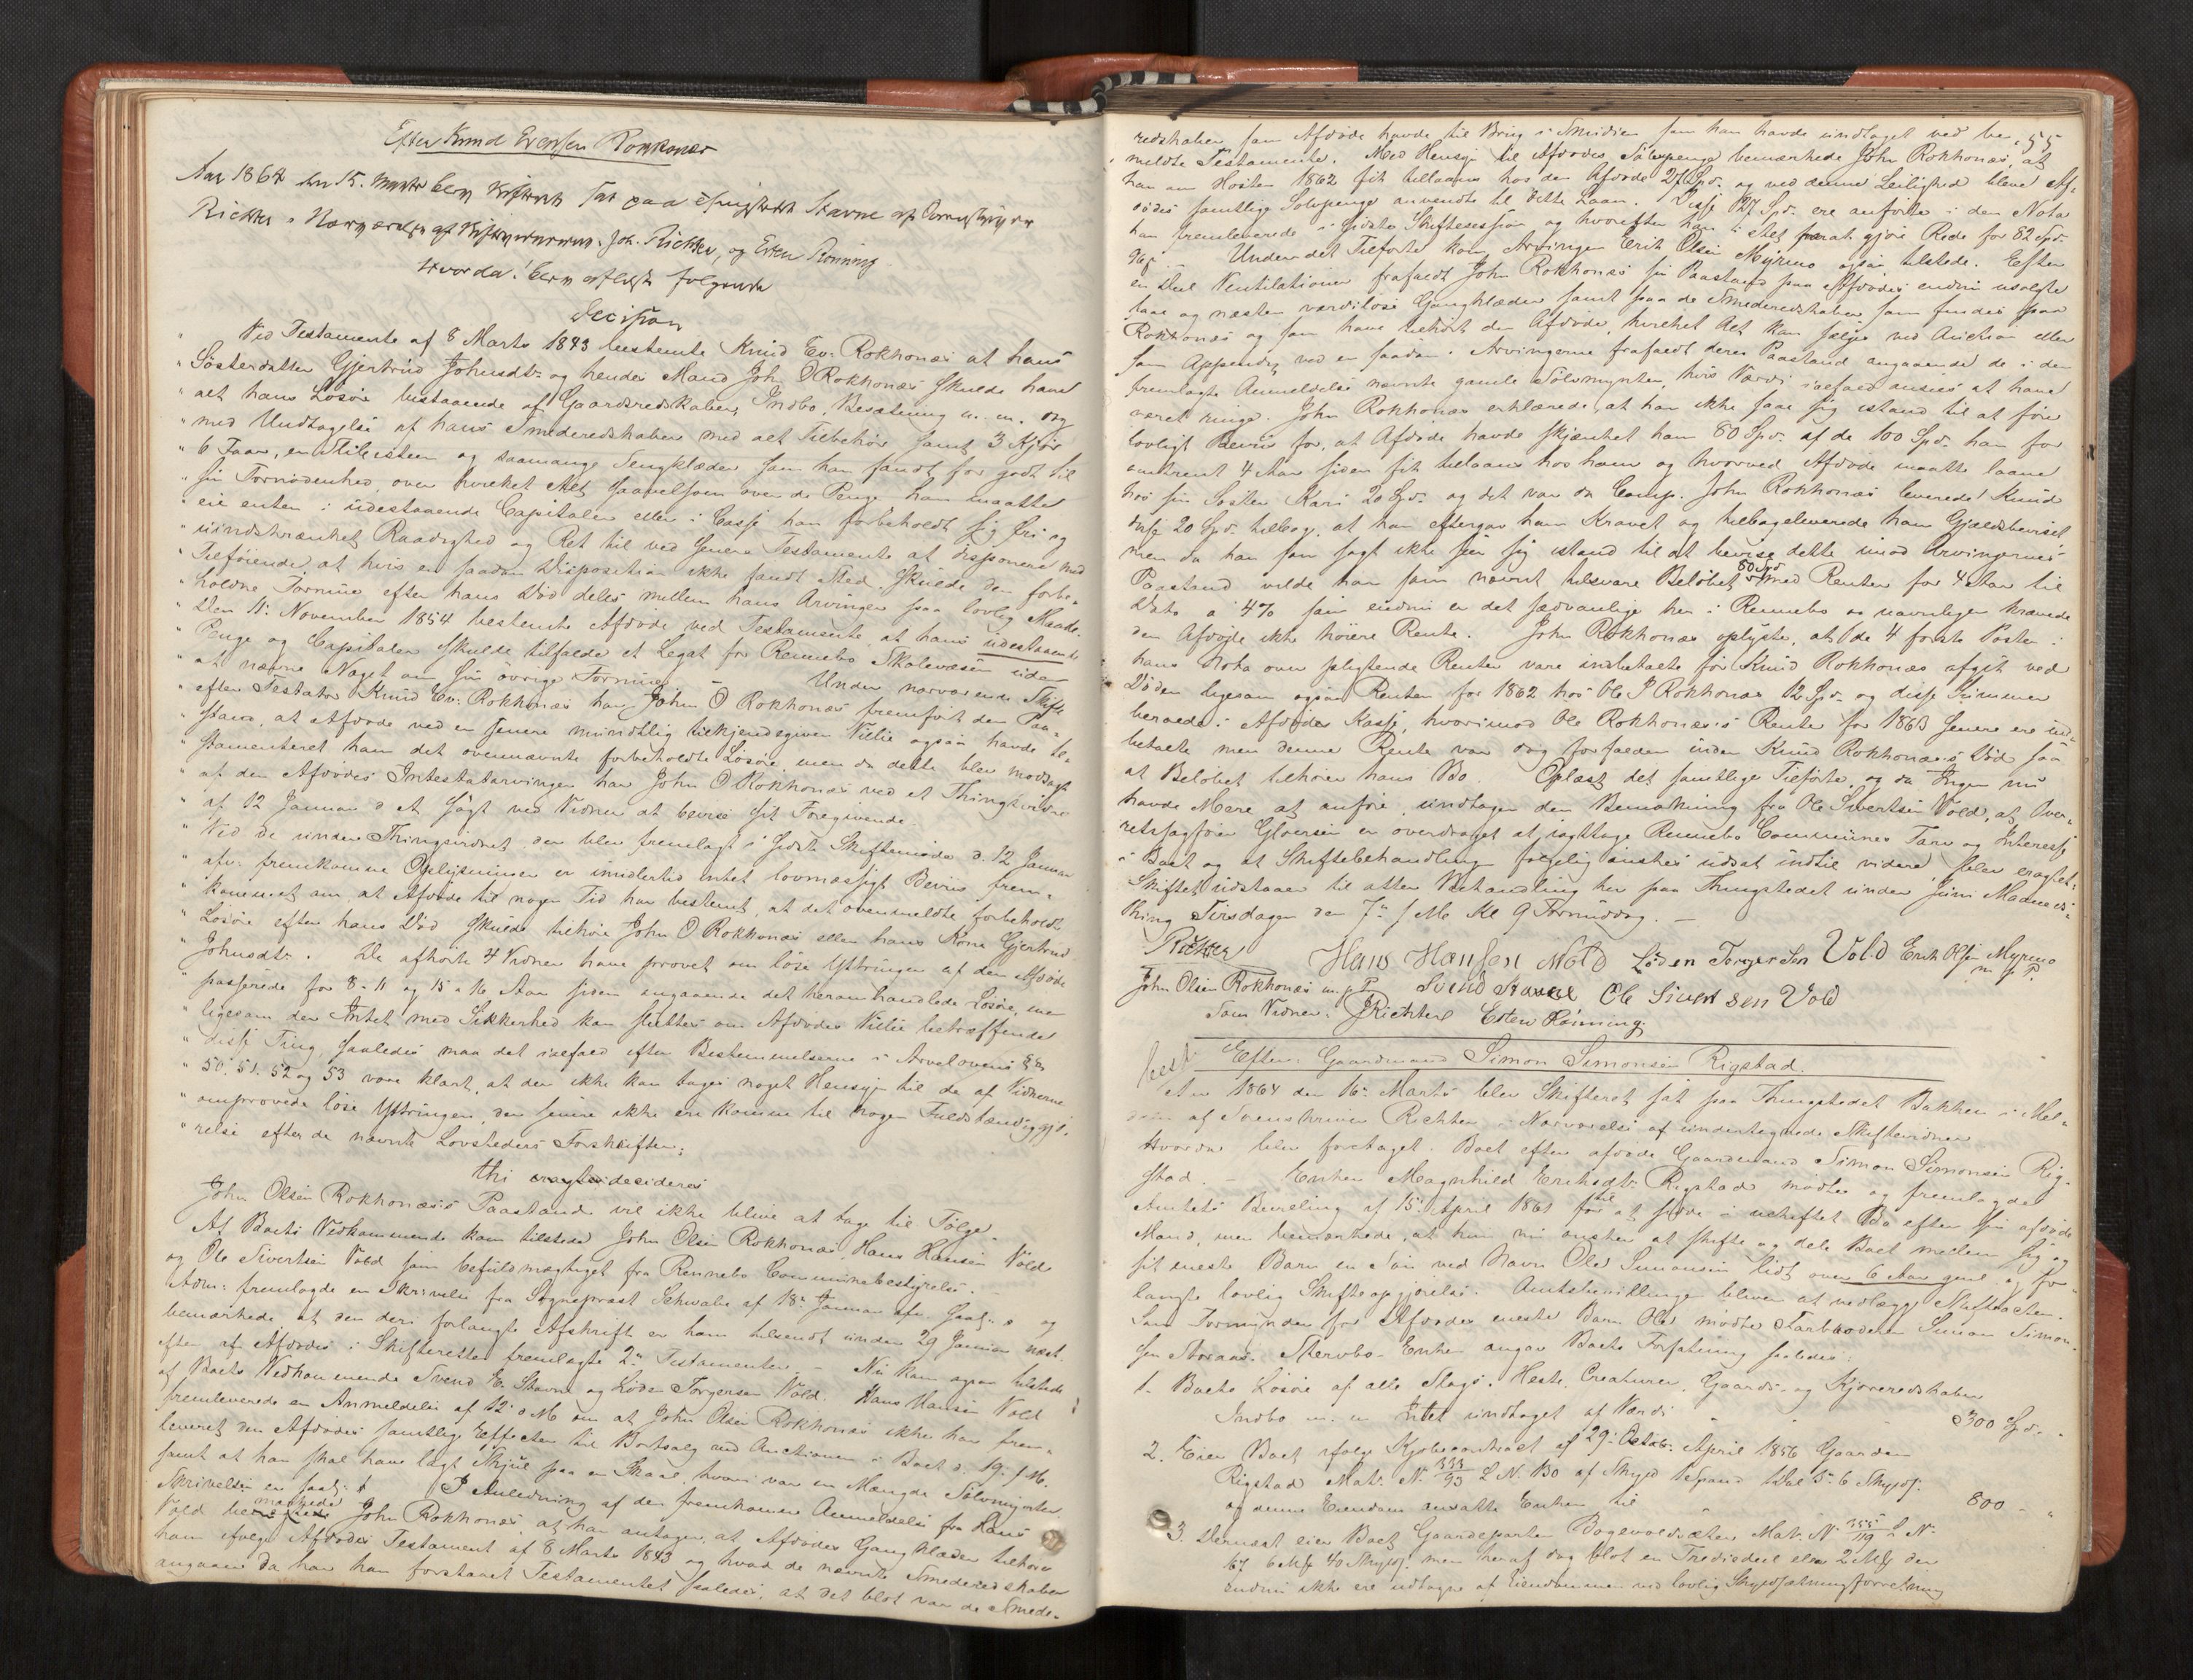 Efter Knud Evensen Rokkones
Aar 1864 den 15. Marts blev Skifteret sat paa Thingstedet Stavne af Sorenskriver
Richter i Nærværelse af Skiftevidnerne Joh. Richter, og Esten Rönning
Hvorda! blev aflagt følgende
Decision
" Ved Testamente af 8 Marts 1843 bestemte Knud Ev. Rokkones at hans
" Søsterdatter Gjertrud Johnsdtr og hendes Mand John O Rokhonæs skulde have
" alt hans Løsøre bestaaende af Gaardsredskaber, Indbo, Besætning m. m. og
" med Undtagelse af hans Smederedskaber med alt Tilbehør samt 3 Kjør
" 6 Faar, en Stilesteen og saamange Sengklæder som han fandt for godt til
" sin Fornødenhed, over hvilket Alt saavelsom over de Penge han maatte
" eie enten i udestaaende Capitaler eller i Casse han forbeholdt sig fri og
" uindskrænket Raadighed og Ret til ved senere Testamente at disponere med
" Tilføiende, at hvis en saadan Disposition ikke fandt Sted, skulde den forbe-
" holdne Formue efter hans Død deles mellem hans Arvinger paa lovlig Maade.
" Den 11. November 1854 bestemte Afdøde ved Testamente, at hans udestaaende
" Penge og Capitaler skulde tilfalde et Legat for Rennebo Skolevæsen uden
" at nævne Noget om sin øvrige Formue. Under nærværende Skifte
" efter Testator Knud Ev. Rokhonæs har John O Rokhonæs fremført den Paa-
" stand, at Afdøde ved en senere mundtlig tilkjendegiven Villie ogsaa havde te-
" stamenteret ham det ovennævnte forbeholdte Løsøre, men da dette blev modsagt
" af den Afdødes Intestatarvinger har John O Rokhonæs ved et Thingsvidne
" af 12 Januar d. A. søgt ved Vidner at bevise sit Foregivende.
" Ved de under Thingsvidnet, der blev fremlagt i sidste Skiftemøde d. 12 Januar
" afv. fremkomne Oplysninger er imidlertid intet lovmæssigt Beviis frem-
" kommet om, at Afdøde til nogen Tid har bestemt, at det ovenmeldte forbeholdte
" Løsøre efter hans Død skulde tilhøre John O Rokkonæs eller hans Kone Gjertrud
" Johnsdtr. De afhørte 4 Vidner have provet om løse Yttringer af den Afdøde
" passerede for 8 - 11 og 15 a 16 Aar siden angaaende det heromhandlede Løsøre, men
" ligesom der Intet med Sikkerhed kan sluttes om Afdødes Villie betræffende
" disse Ting, saaledes maa det ialfald efter Bestemmelserne i Arvelovens §§
" 50. 51. 52 og 53 være klart, at der ikke kan tages noget Hensyn til de af Vidnerne
" omprovede løse Yttringer, der senere ikke ere komne til nogen Fuldstændiggjø-
" relse efter de nævnte Lovsteders Forskrifter;
thi eragtes decideres
John Olsen Rokkonæs's Paastand vil ikke blive at tage til Følge.
Af Boets Vedkommende kom tilstede John Olsen Rokkonæs, Hans Hansen Vold
og Ole Sivertsen Vold som befuldmægtiget fra Rennebo Communebestyrelse.
Adm: fremlagde en Skrivelse fra Sogneprest Schwabe af 18. Januar afv. saal: o og
bemærkede, at den deri forlangte Afskrift er ham tilsendt under 29 Januar næst
efter af Afdødes i Skifteretten fremlagte 2de Testamenter. - Nu kom ogsaa tilstede
af Boets Vedkommende Svend E. Stavne og Loden Torgersen Vold. Hans Hansen Vold
fremleverede en Anmeldelse af 12 d. M. om at John Olsen Rokkonæs ikke har frem-
leveret den Afdødes samtlige Effecter til Bortsalg ved Auctionen i Boet d. 19. f. M.
samt at han skal have lagt Skjul paa en Skaal, hvori var en Mængde Sølvmynter.
Skrivelsen er saal: I Anledning af den fremkomne Anmeldelse fra Hans
Vold bemærkede John Rokkonæs, at han antager, at Afdødes Gangklæder tilhøre
ham ifølge Afdødes Testament af 8 Marts 1843 og hvad de nævnte Smederedskaber
angaaer da har han forstaaet Testamentet saaledes, at det blot var de Smede-
55
redskaber, som Afdøde havde til Brug i Smidien som han havde undtaget ved be-
meldte Testamente. Med Hensyn til Afdødes Sølvpenge bemærkede John Rokkonæs, at
han om Høsten 1862 fik tillaans hos den Afdøde 27 Spd. og ved denne Leilighed bleve Af-
dødes samtlige Sølvpenge anvendte til dette Laan. Disse 27 Spd. ere anførte i den Nota
han fremleverede i sidste Skiftesession og hvorefter han i Alt gjøre Rede for 82 Spd.
96 s. - Under det Tilførte kom Arvingen Erik Olsen Myrmo ogsaa tilstede. Efter
en Deel Ventilationer frafaldt John Rokkonæs sin Paastand paa Afdødes endnu usolgte
faae og næsten værdiløse Gangklæder samt paa de Smederedskaber som findes paa
Rokkonæs og som have tilhørt den Afdøde, hvilket Alt kan sælges ved Auction eller
som Appendix ved en saadan. Arvingerne frafaldt deres Paastand angaaende de i den
fremlagte Anmeldelse nævnte gamle Sølvmynter, hvis Værdi ialfald ansees at have
været ringe. John Rokkonæs erklærede, at han ikke saae sig istand til at føre
lovligt Beviis for, at Afdøde havde skjænket ham 80 Spd. af de 100 Spd. han for
omtrent 4 Aar siden fik tillaans hos ham og hvorved Afdøde maatte laane
hos sin Søster Kari 20 Spd. og det var da Comp. John Rokkonæs leverede Knud
disse 20 Spd. tilbage, at han eftergav ham Kravet og tilbageleverede ham Gjældsbeviset,
men da han som sagt ikke seer sig istand til at bevise dette imod Arvingernes
Paastand vilde han som nævnt tilsvare Beløbet 80 Spd med Renter for 4 Aar til
Dato a 4% som endnu er det sædvanlige her i Rennebo og navnligen krævede
den Afdøde ikke høiere Rente. John Rokkonæs oplyste, at de 4 første Poster i
hans Nota over pligtende Renter vare indbetalte før Knud Rokkonæs afgik ved
Døden ligesom ogsaa Renten for 1862 hos Ole J Rokhonæs 12 Spd. og disse Summer
beroede i Afdødes Kasse, hvorimod Ole Rokkonæs's Rente for 1863 senere ere ind-
betalte men denne Rente var dog forfalden inden Knud Rokkonæs's Død saa
at Beløbet tilhører hans Bo. Oplæst det samtlige Tilførte, og da Ingen nu
havde Mere at anføre, undtagen den Bemærkning fra Ole Sivertsen Vold, at Over-
retssagfører Gløersen er overdraget at iagttage Rennebo Communes Tarv og Interesse
i Boet og at Skiftebehandling følgelig ønskes udsat indtil videre, blev eragtet:
Skiftet udstaaer til atter Behandling her paa Thingstedet under Juni Maaneds
Thing Tirsdagen den 7de f. M. Kl 9 Formiddag. -
Richter Hans Hansen Wold Loden Torgersen Vold Erik Olsen Myrmo
m. p. P.
John Olsen Rokkonæs m. p. P. Svend Stavne Ole Sivertsen Vold
Som Vidner: J Richter Esten Rönning.
Efter Gaardmand Simon Simonsen Rigstad.
Aar 1864 den 16. Marts blev Skifteret sat paa Thingstedet Bakken i Mel-
dalen af Sorenskriver Richter i Nærværelse af undertegnede Skiftevidner
Hvorda blev foretaget Boet efter afdøde Gaardmand Simon Simonsen Rig-
stad. - Enken Magnhild Eriksdtr Rigstad mødte og fremlagde
Amtets Bevilling af 15. April 1861 for til at sidde i uskiftet Bo efter sin afdøde
Mand, men bemærkede, at hun nu ønsker at skifte og dele Boet mellem sig og
sit eneste Barn en Søn ved Navn Ole Simonsen lidt over 6 Aar gml. og for-
langte lovlig Skifteopgjørelse. Amtsbevillingen bliver at vedlægge Skifteacten.
Som Formynder for Afdødes eneste Barn Ole mødte Farbroderen Simon Simon-
sen Storaas. Stervbo-Enken angav Boets Forfatning saaledes:
1. Boets Løsøre af alle Slags. Heste, Creaturer, Gaards- og Kjøreredskaber
Indbo m. m. Intet undtaget af Værdi " " 300 Spd. "
2. Eier Boet ifølge Kjøbecontract af 29. Octob. April 1856 Gaarden
Rigstad Mat. N. 333/93 L N. 80 af Skyld 1 Dal 5. 6 Skyds.
og denne Eiendom ansatte Enken til " 800 - "
3. Dernæst eier Boet Gaardeparten Bogevoldsæter Mat. N. 355/119 L N.
67 6 Mk 40 Skyds. men heraf dog blot en Trediedeel eller 2 Mk der
endnu ikke ere udtagne af Eiendommen ved lovlig Skyldsætningsforretning